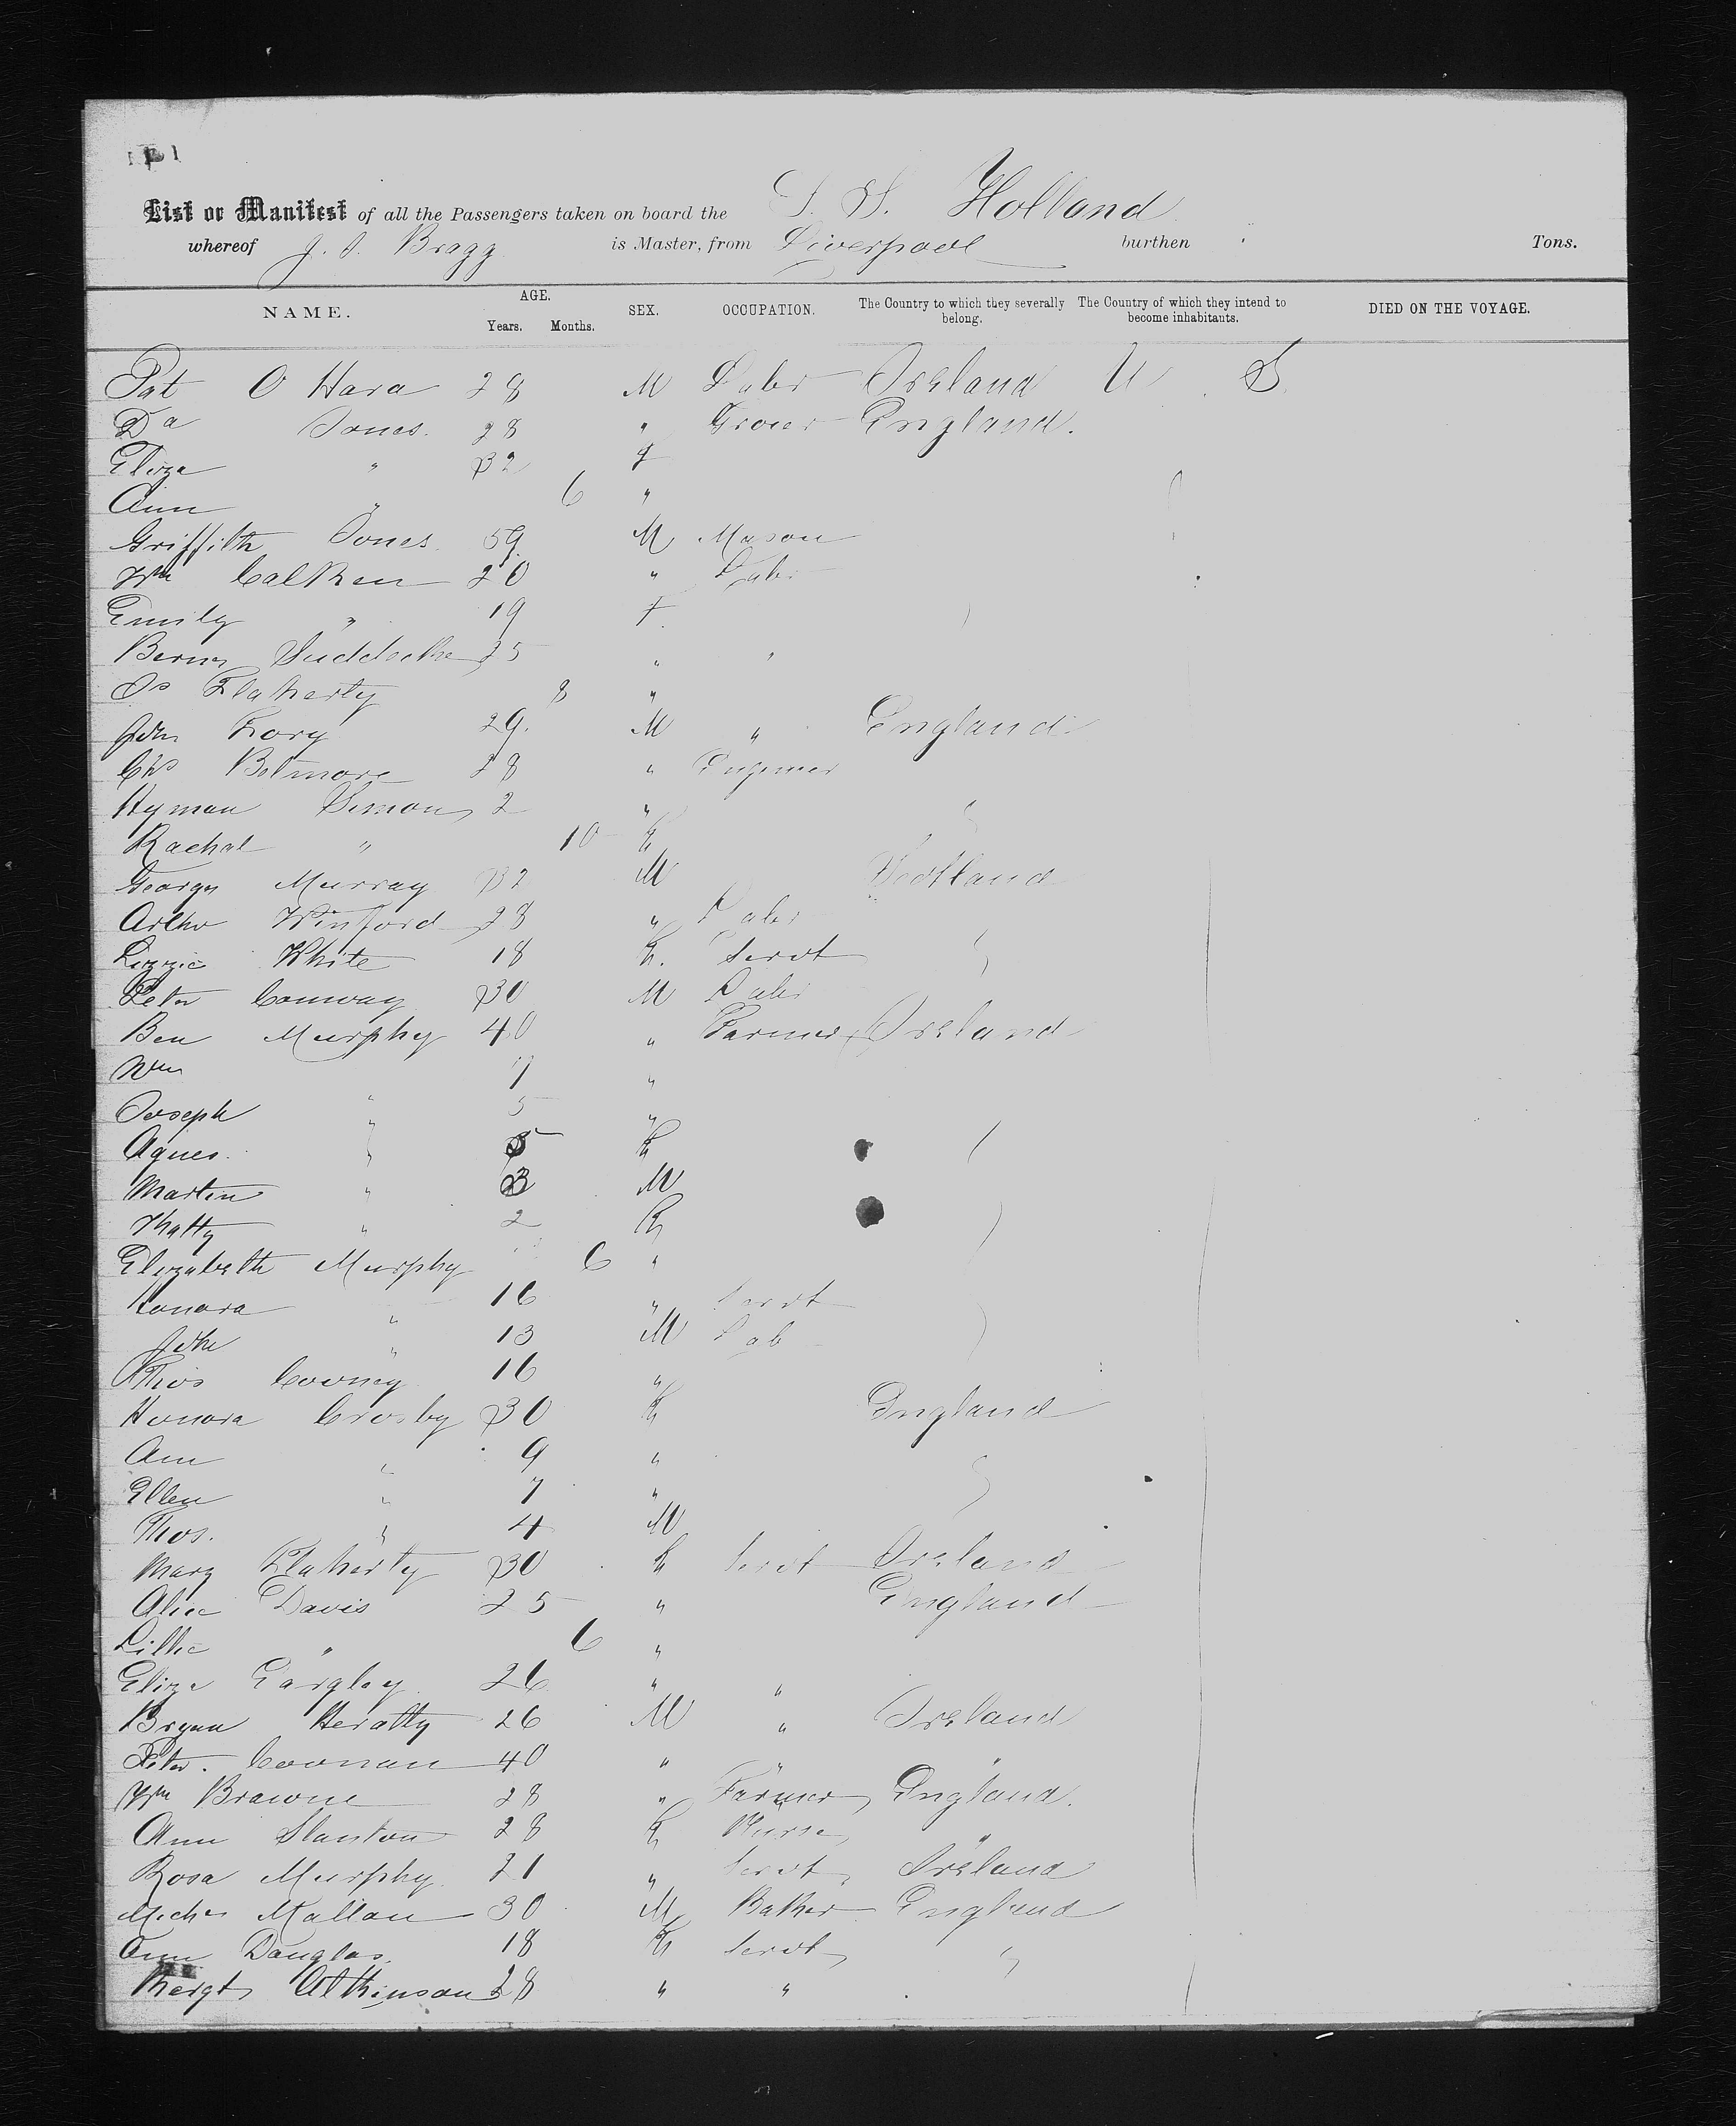 List or Manifest of all the Passengers taken on board the S. S. Holland
whereof J. S. Bragg is Master, from Liverpool burthen Tons.
NAME. AGE. Years. Months. SEX. OCCUPATION. The Country to which they severally belong. The Country of which they intend to become inhabitants. DIED ON THE VOYAGE.
Pat O Hara 28 M Labr Ireland U S.
Da Jones. 28 " Grocer England.
Eliza " 32 f
Ann " 6 "
Griffith Jones 59 M Mason
Wm Calken 20 " Labr
Emily " 19 f.
25 " "
Flaherty 8 "
John Fory 29. M " England
Chs Betmore 28 " Engineer
Hyman Simons 2 "
Rachal " 10 f
George Murray 32 M Scotland
Arthr Winford 28 " Labr
Lizzie White 18 f. Servt
Peter Conway 30 M Labr
Ben Murphy 40 " Farmer Ireland
Wm 7 "
Joseph " 5 "
Agnes. " 5 f
Martin " 3 M
" 2 f
Elizabeth Murphy 6 "
Honora " 16 " Servt
John " 13 M Lab
Thos Cooney 16 "
Honora Crosby 30 f England
Ann " 9 "
Ellen " 7 "
Thos. " 4 M
Mary Flaherty 30 f Servt Ireland
Alice Davis 25 " England
Lillie " 6 "
Eliza Gargley 26 " "
Bryan Heratty 26 M " Ireland
Peter. Coonan 40 " "
Wm Browne 28 " Farmer England.
Ann Stanton 28 f Nurse "
Rosa Murphy 21 " Servt Ireland
Michl Mallon 30 M Baker England
Ann Douglas. 18 f Servt "
Margt Atkinson 28 " "